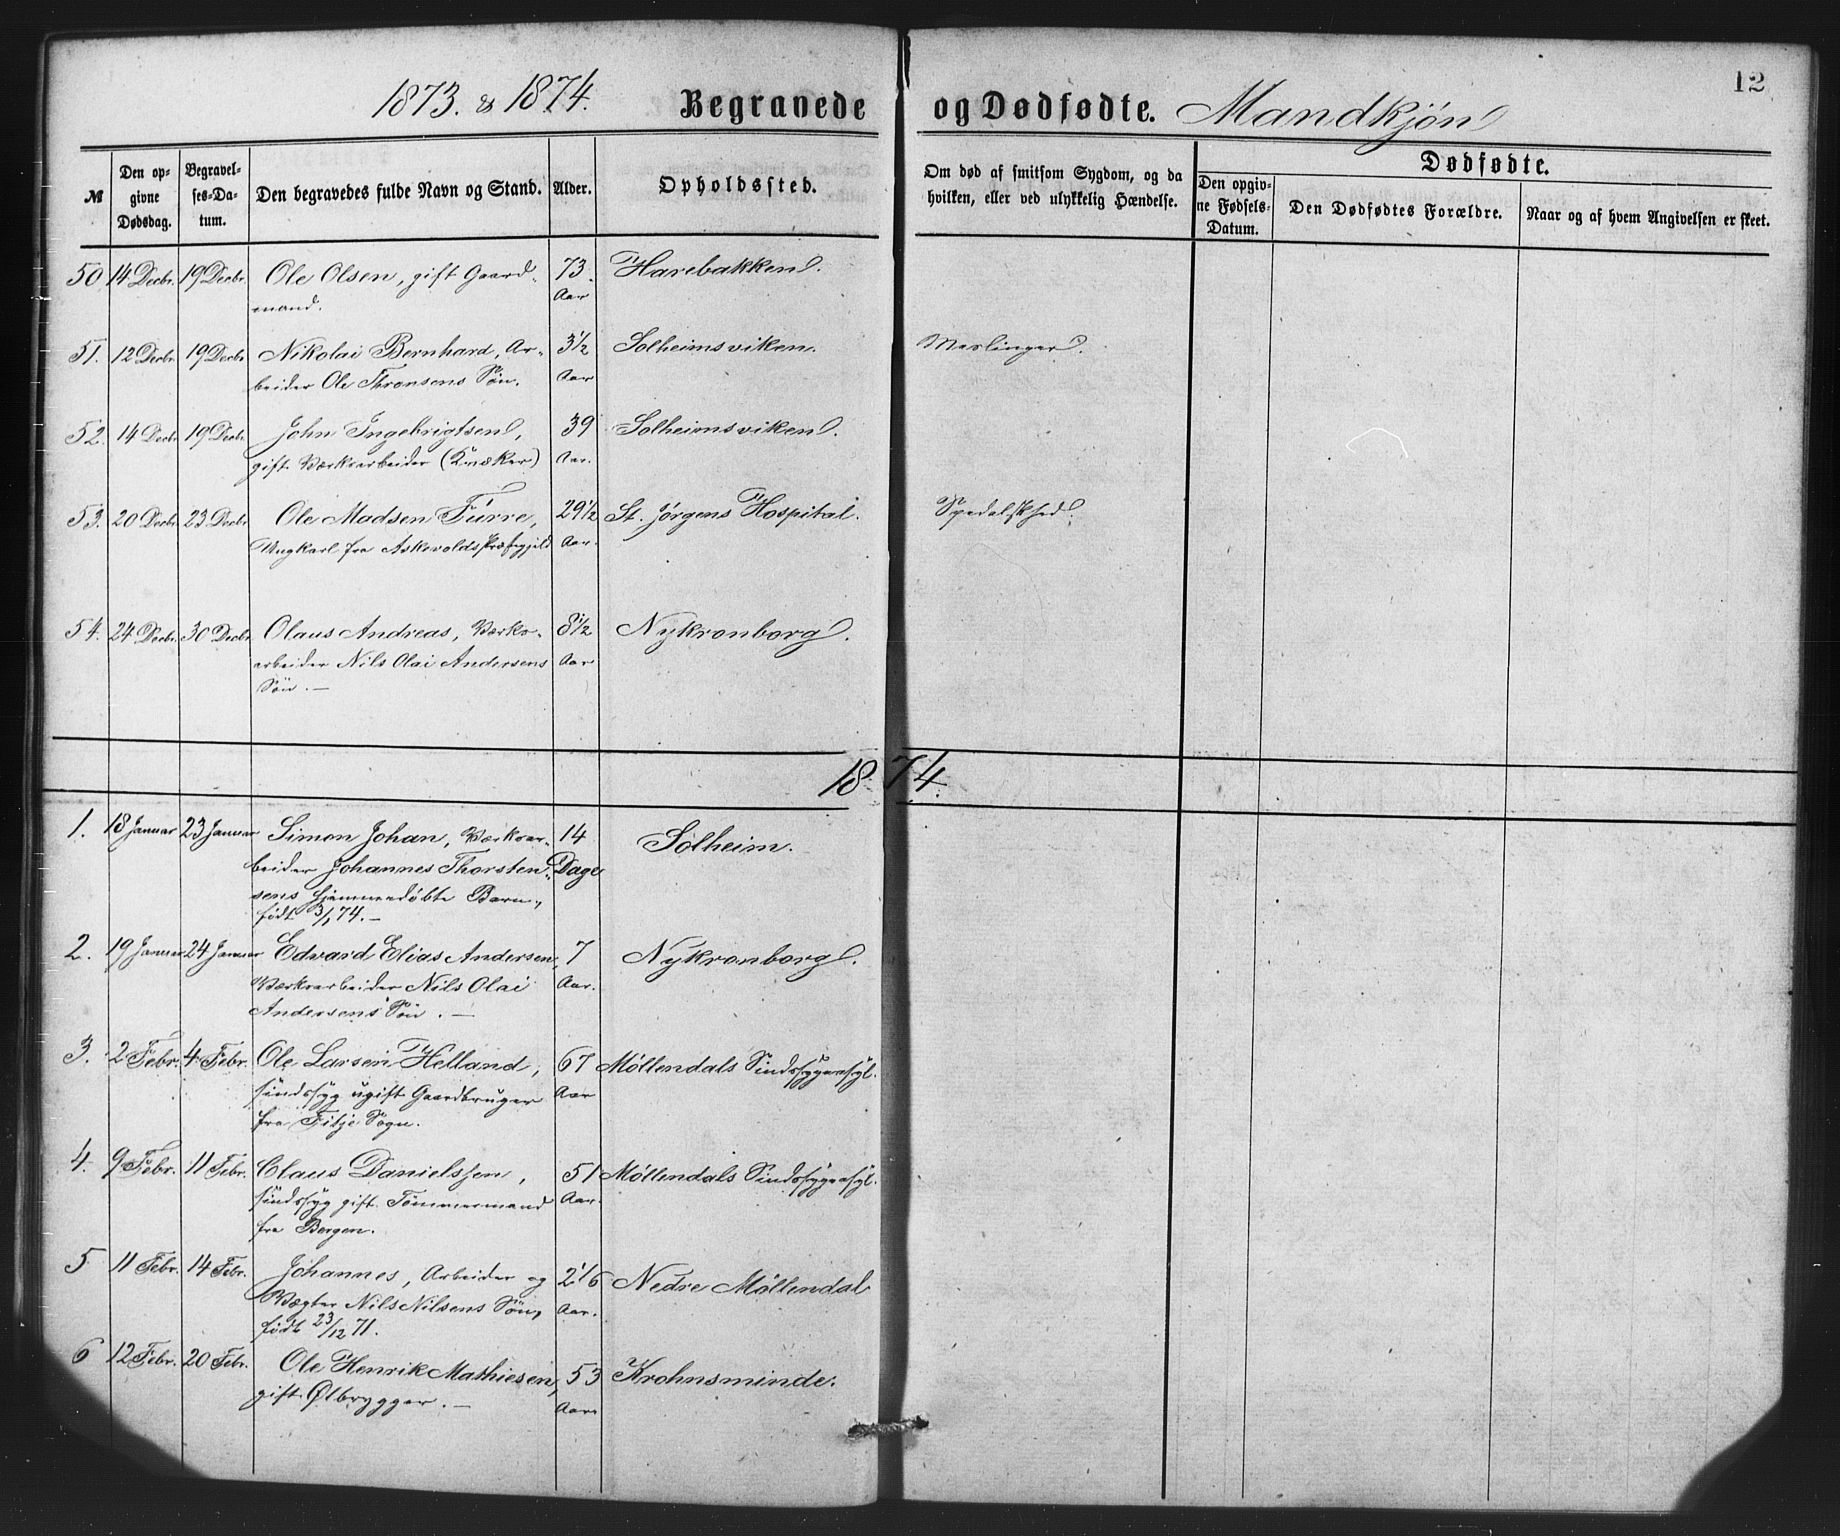 12
1873. & 1874. Begravede og Dødfødte. Mandkjøn
№ Den opgivne Dødsdag. Begravelses-Datum. Den begravedes fulde Navn og Stand. Alder. Opholdssted. Om død af smitsom Sygdom, og da hvilken, eller ved ulykkelig Hændelse. Dødfødte. Den opgivne Fødsels-Datum. Den Dødfødtes Forældre. Naar og af hvem Angivelsen er skeet.
50 14 Decbr. 19 Decbr. Ole Olsen, gift Gaard- 73. Harebakken.
mand. Aar
51. 12 Decbr. 19 Decbr. Nikolai Bernhard, Ar- 3½ Solheimsviken. Meslinger.
beider Ole Thronsens Søn. Aar
52. 14 Decbr. 19 Decbr. John Ingebrigtsen, 39 Solheimsviken.
gift Værksarbeider (Knæker) Aar.
53. 20 Decbr. 23 Decbr. Ole Madsen Furre, 29½ St. Jørgens Hospital. Spedalskhed.
Ungkarl fra Askevolds Præstegjeld Aar.
54. 24 Decbr. 30 Decbr. Olaus Andreas, Værks- 8½ Nykronborg.
arbeider Nils Olai Andersens Aar
Søn. —
1874.
1. 18 Januar 23 Januar Simon Johan, Værksar- 14 Solheim.
beider Johannes Thorsten- Dage
sens hjemmedøbte Barn,
født 3/1 74. —
2. 19 Januar 24 Januar Edvard Elias Andersen, 7 Nykronborg.
Værksarbeider Nils Olai Aar.
Andersens Søn. —
3. 2 Febr. 4 Febr. Ole Larsen Helland, 67 Møllendals Sindssygeasyl.
sindssyg ugift Gaardbruger Aar
fra Fitje Sogn.
4. 9 Febr. 11 Febr. Claus Danielssen, 51 Møllendals Sindssygeasyl.
sindssyg gift Tømmermand Aar.
fra Bergen.
5 11 Febr. 14 Febr. Johannes, Arbeider og 2 1/6 Nedre Møllendal
Vægter Nils Nilsens Søn, Aar.
født 23/12 71.
6 12 Febr. 20 Febr. Ole Henrik Mathiesen, 53 Krohnsminde.
gift Ølbrygger. — Aar